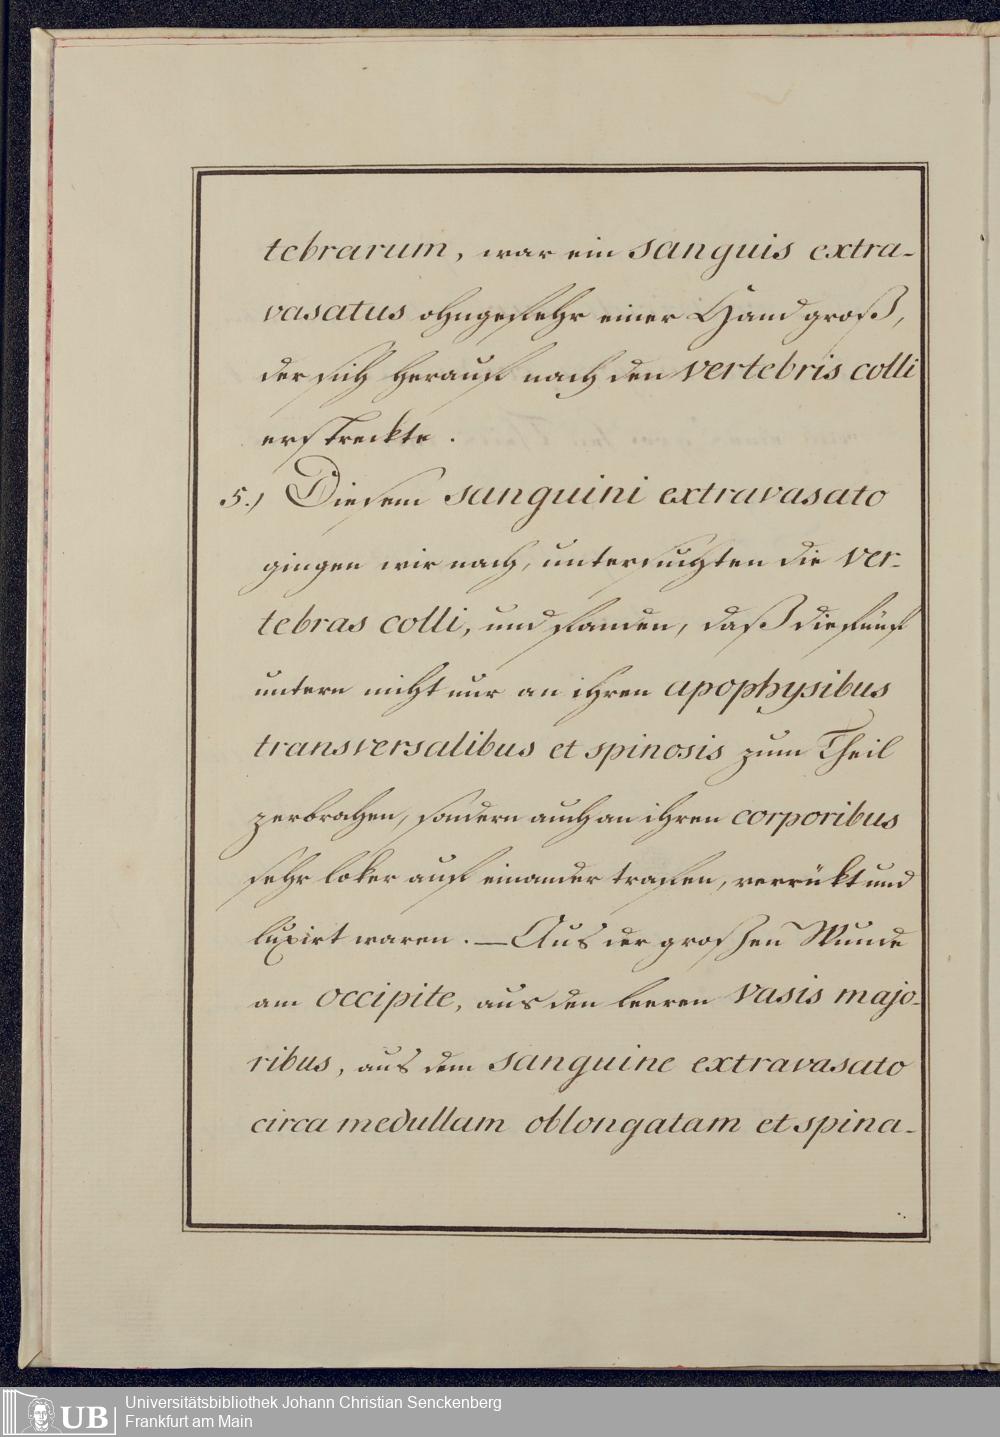 tebrarum, war ein sanguis extra-
vasatus ohngefehr einer Hand groß,
der sich herauf nach den vertebris colli
erstreckte.
5.) Diesem sanguini extravasato
gingen wir nach, untersuchten die ver-
tebras colli, und fanden, daß die fünf
untern nicht nur an ihren apophysibus
transversalibus et spinosis zum Theil
zerbrochen, sondern auch an ihren corporibus
sehr loker auf einander trafen, verrükt und
luxirt waren. — Aus der großen Wunde
am occipite, aus den leeren vasis majo-
ribus, aus dem sanguine extravasato
circa medullam oblongatam et spina-
UB
Universitätsbibliothek Johann Christian Senckenberg
Frankfurt am Main